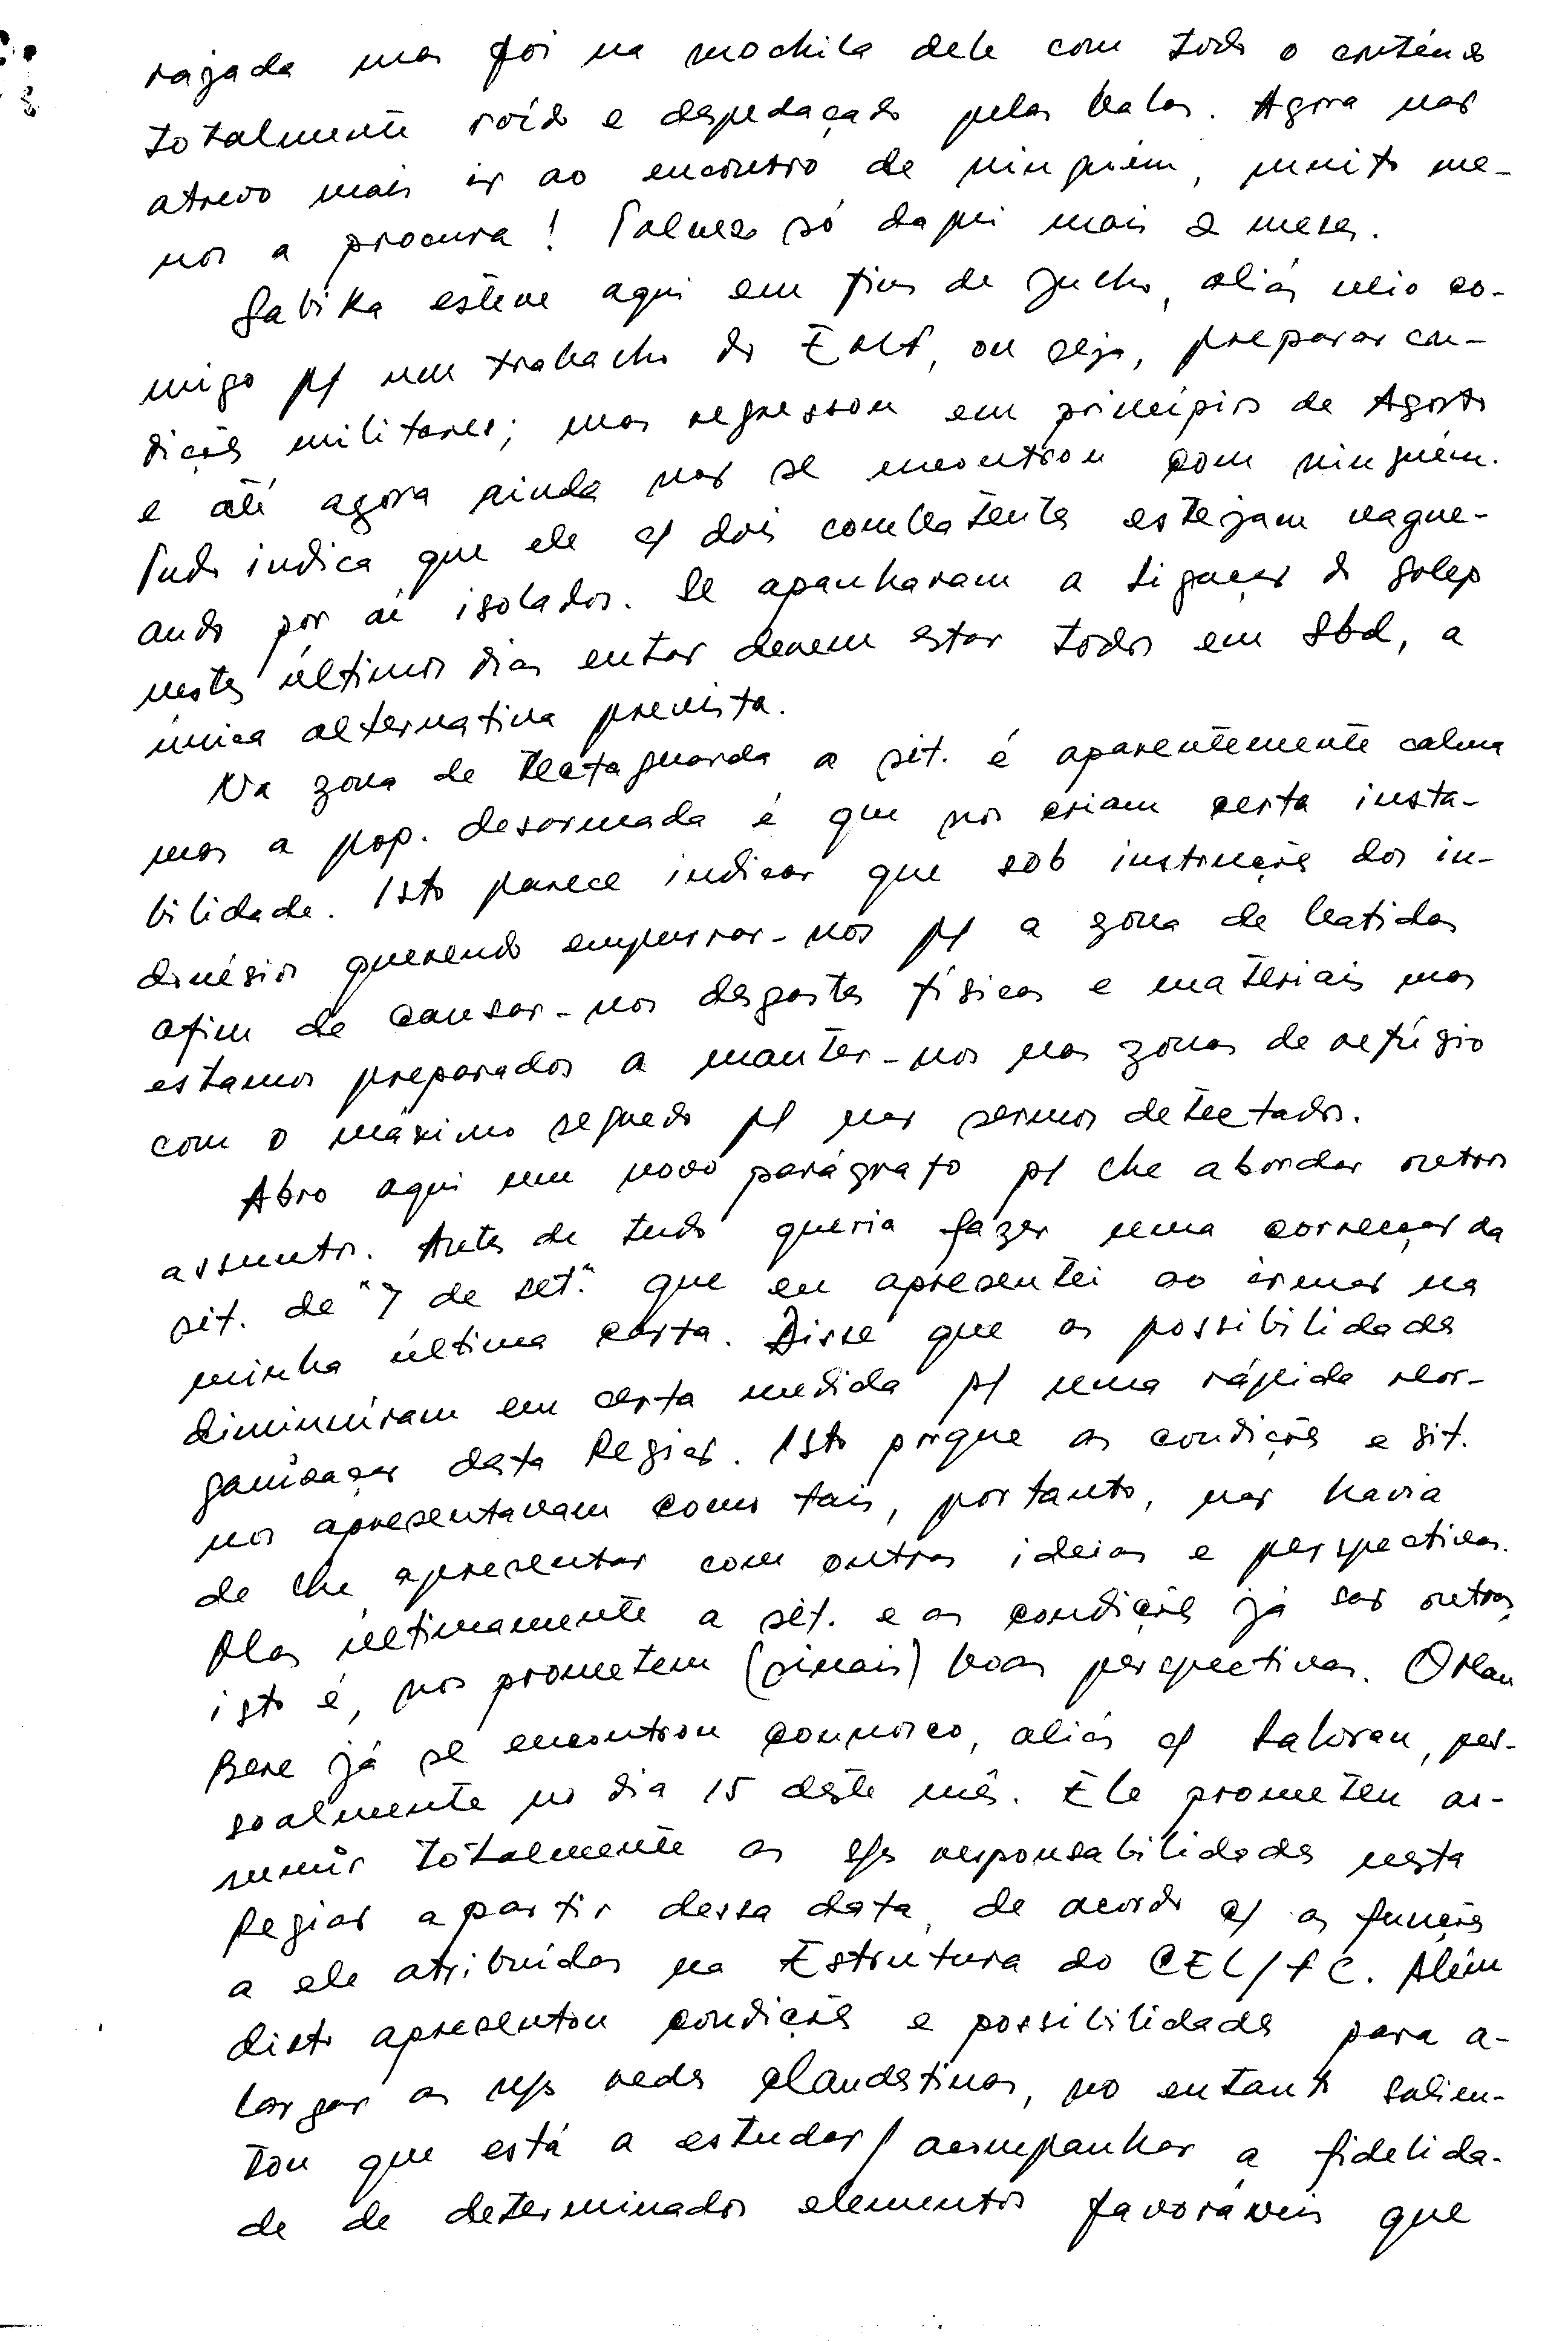 rajada mas foi na mochila dele com todo o conteúdo
totalmente roído e despedaçado pelas balas. Agora não
atrevo mais ir ao encontro de ninguém, muito me-
nos a procura! Talvez só daqui mais 2 meses.
Sabika esteve aqui em fins de Julho, aliás veio co-
migo p/ um trabalho do EMF, ou seja, preparar con-
dições militares; mas regressou em princípios de Agosto
e até agora ainda não se encontrou com ninguém.
Tudo indica que ele c/ dois combatentes estejam vague-
ando por aí isolados. Se apanharam a ligação do golep
nestes últimos dias então devem estar todos em Sbd, a
única alternativa prevista.
Na zona de rectaguarda a sit. é aparentemente calma
mas a pop. desarmada é que nos criam certa insta-
bilidade. Isto parece indicar que sob instruções dos in-
donésios querendo empurrar-nos p/ a zona de batidas
afim de causar-nos desgastes físicos e materiais mas
estamos preparados a manter-nos nas zonas de refúgio
com o máximo segredo p/ não sermos detectados.
Abro aqui um novo parágrafo p/ lhe abordar outros
assuntos. Antes de tudo queria fazer uma correcção da
sit. de "7 de set." que eu apresentei ao irmão na
minha última carta. Disse que as possibilidades
diminuíram em certa medida p/ uma rápida reor-
ganização desta Região. Isto porque as condições e sit.
nos apresentavam como tais, portanto, não havia
de lhe apresentar com outras ideias e perspectivas.
Mas ultimamente a sit. e as condições já são outras,
isto é, nos prometem (sinais) boas perspectivas. O Mau
Bere já se encontrou connosco, aliás c/ Saboran, pes-
soalmente no dia 15 deste mês. Ele prometeu as-
sumir totalmente as s/s responsabilidades nesta
Região a partir dessa data, de acordo c/ as funções
a ele atribuídas na Estrutura do CEL/FC. Além
disto apresentou condições e possibilidades para a-
largar as n/s redes clandestinas, no entanto salien-
tou que está a estudar/acompanhar a fidelida-
de de determinados elementos favoráveis que